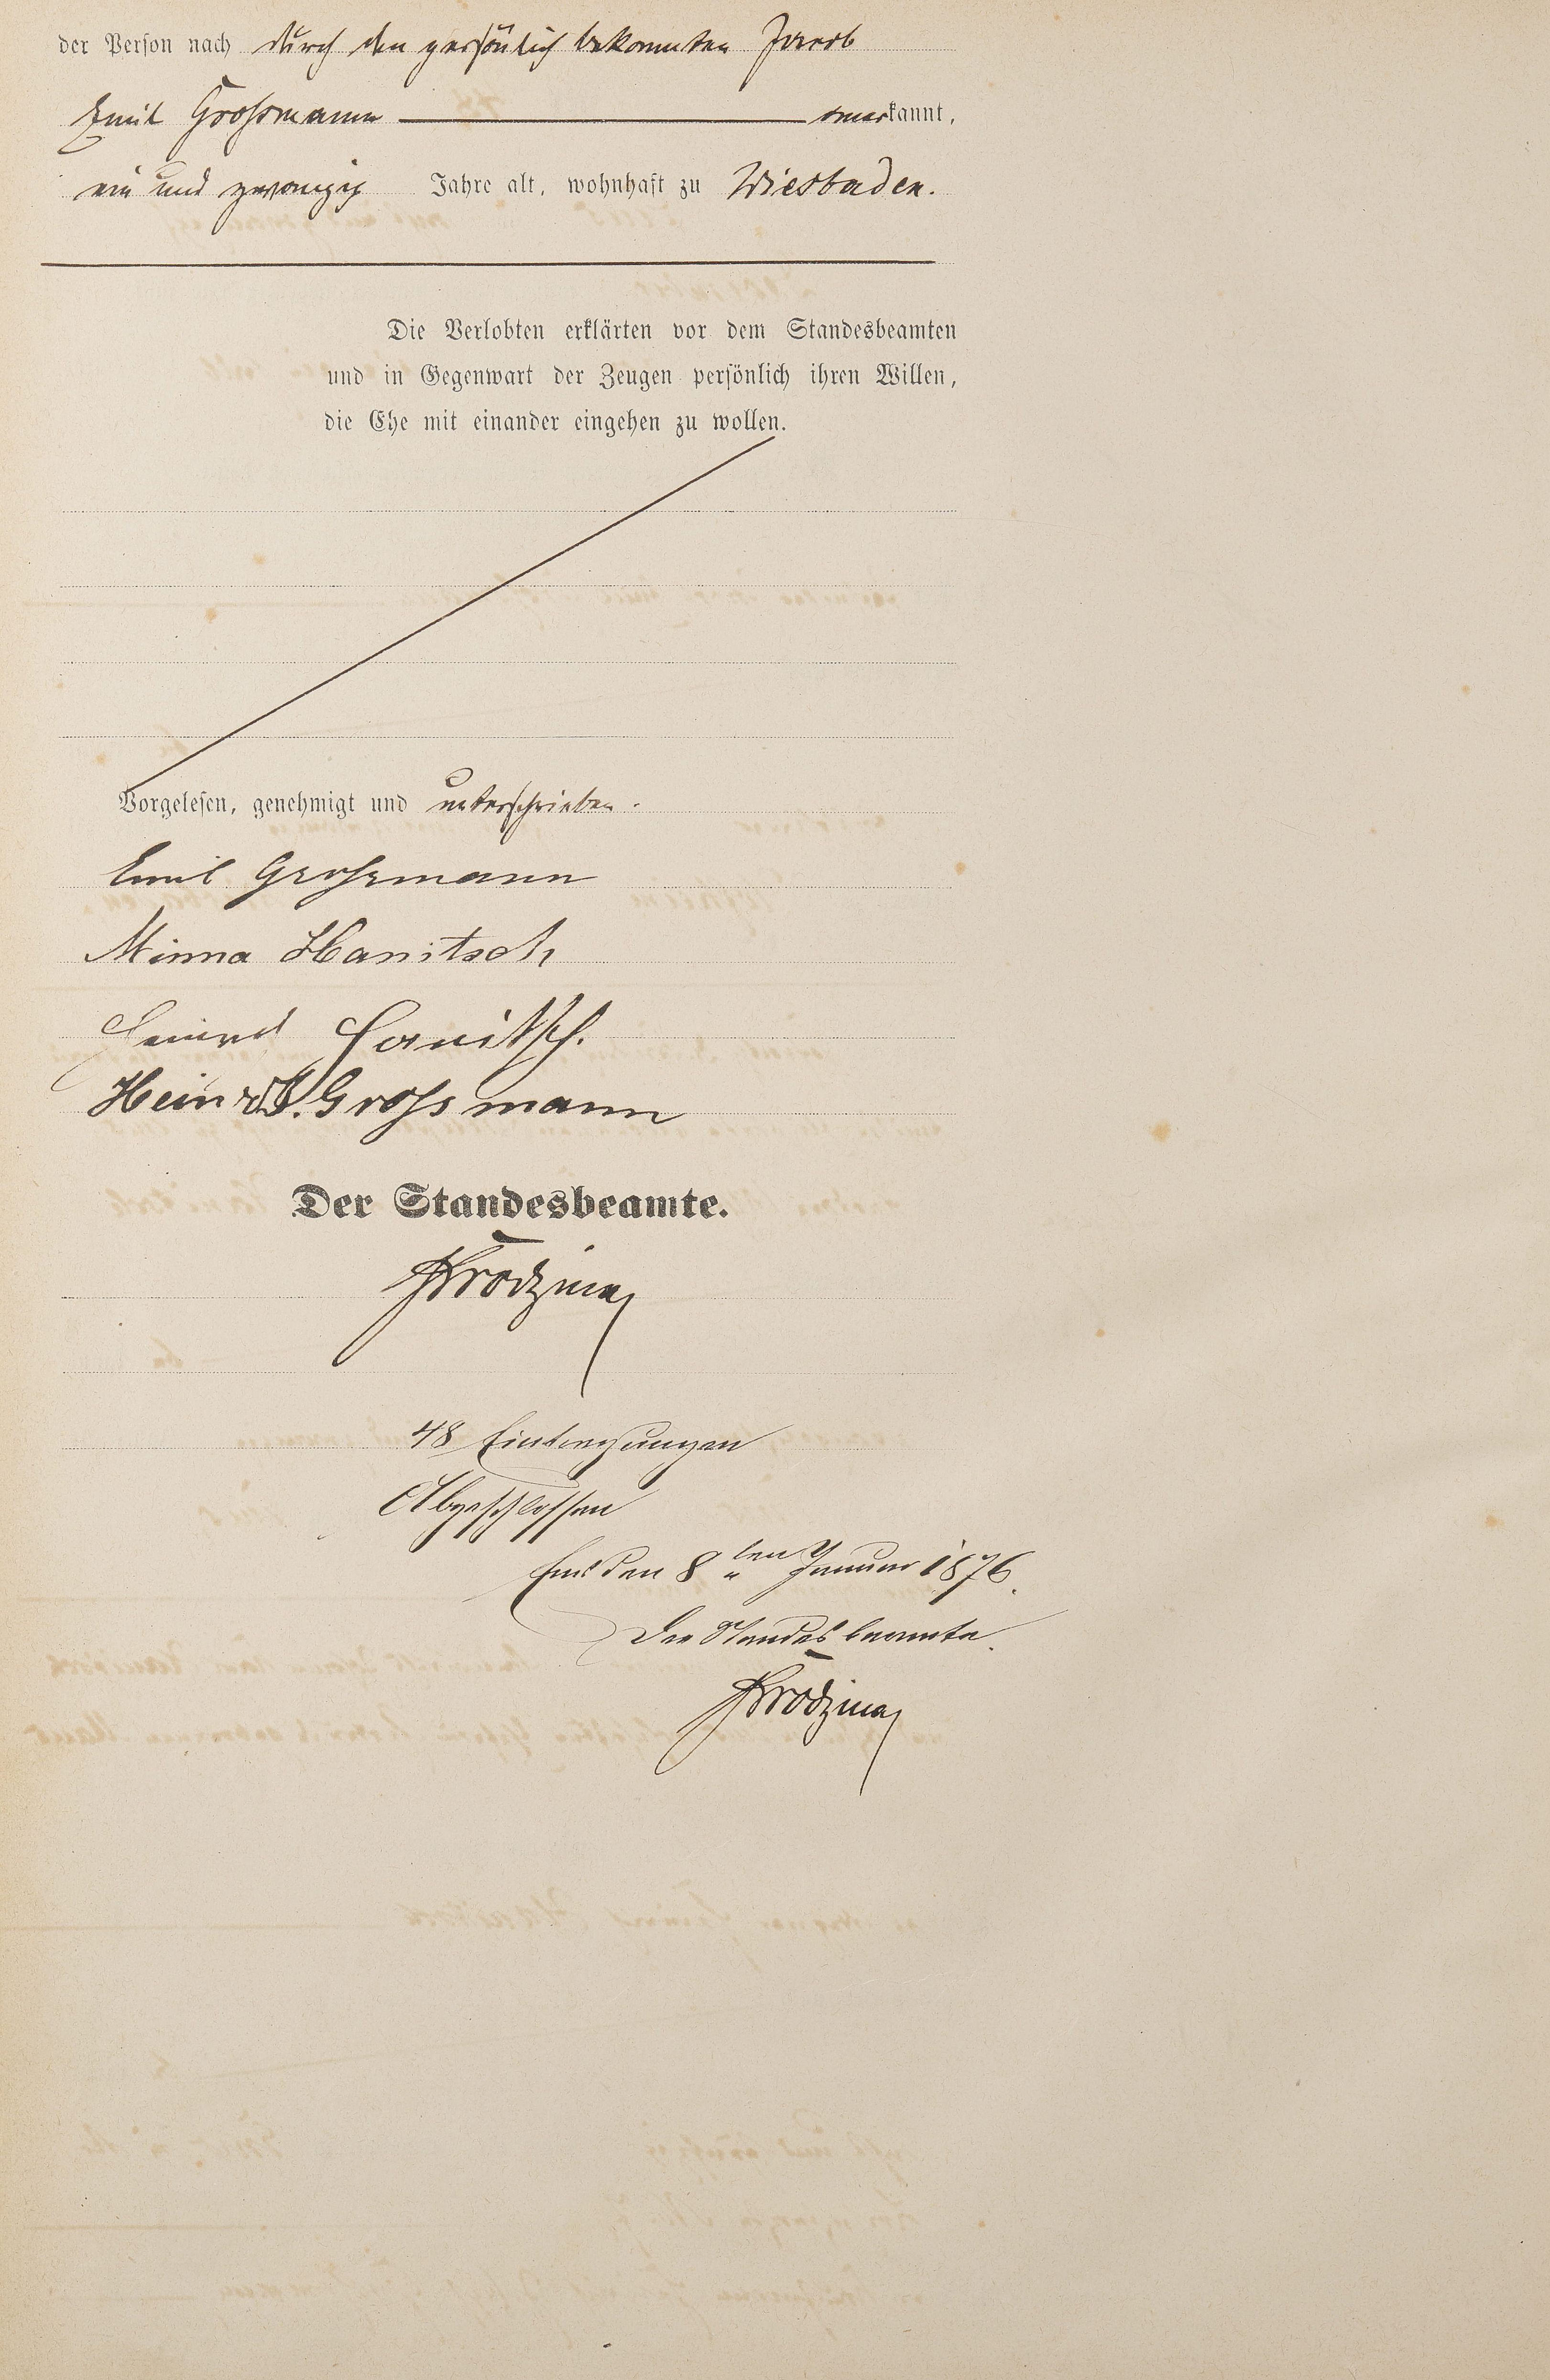 der Person nach durch den persönlich bekannten Jacob
Emil Grossmann anerkannt,
ein und zwanzig Jahre alt, wohnhaft zu Wiesbaden.
Die Verlobten erklärten vor dem Standesbeamten
und in Gegenwart der Zeugen persönlich ihren Willen,
die Ehe mit einander eingehen zu wollen.
Vorgelesen, genehmigt und unterschrieben.
Emil Grossmann
Minna Hanitsch
Hanitsch.
Heinr. J. Grossmann
Der Standesbeamte.
48 Eintragungen
Abgeschlossen
Ems den 8ten Januar 1876.
Der Standesbeamte.